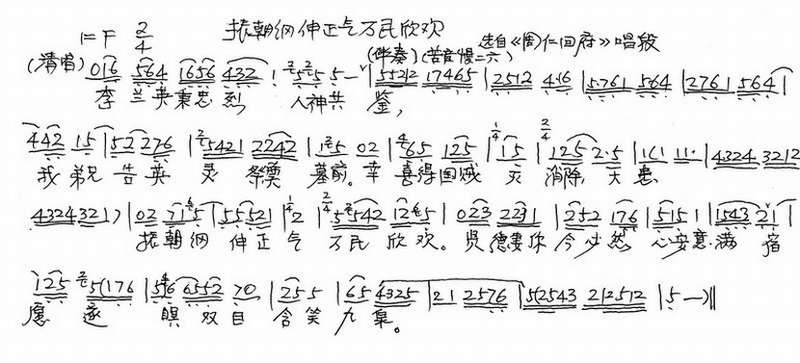 1=F 2/4 振朝纲伸正气万民欣欢
选自《周仁回府》唱段
(清唱) (伴奏)(苦音慢二六)
016 564 1656 432 1 2525 5 - 55212 17465 | 2512 416 | 5761 564 | 2761 564 |
李兰英秉忠烈 人神共鉴,
442 15 | 52 276 | 25421 2242 | 125 02 | 465 125 | 1/4 15 | 2/4 125 2·5 | 111 11· | 4324 3212
我弟兄告英灵祭奠墓前。幸喜得国贼灭消除大患
4324321) | 02 715 | 55521 | 1/4 2 | 2/4 52542 12465 | 023 2231 | 252 176 | 5151 | 1543 21 |
振朝纲伸正气万民欣欢。贤德妻你今必然心安意满宿
125 25(176 | 546 6552 70 | 255 | 65 4325 | 21 2576 | 52543 212512 | 5 -)‖
愿遂瞑双目含笑九泉。